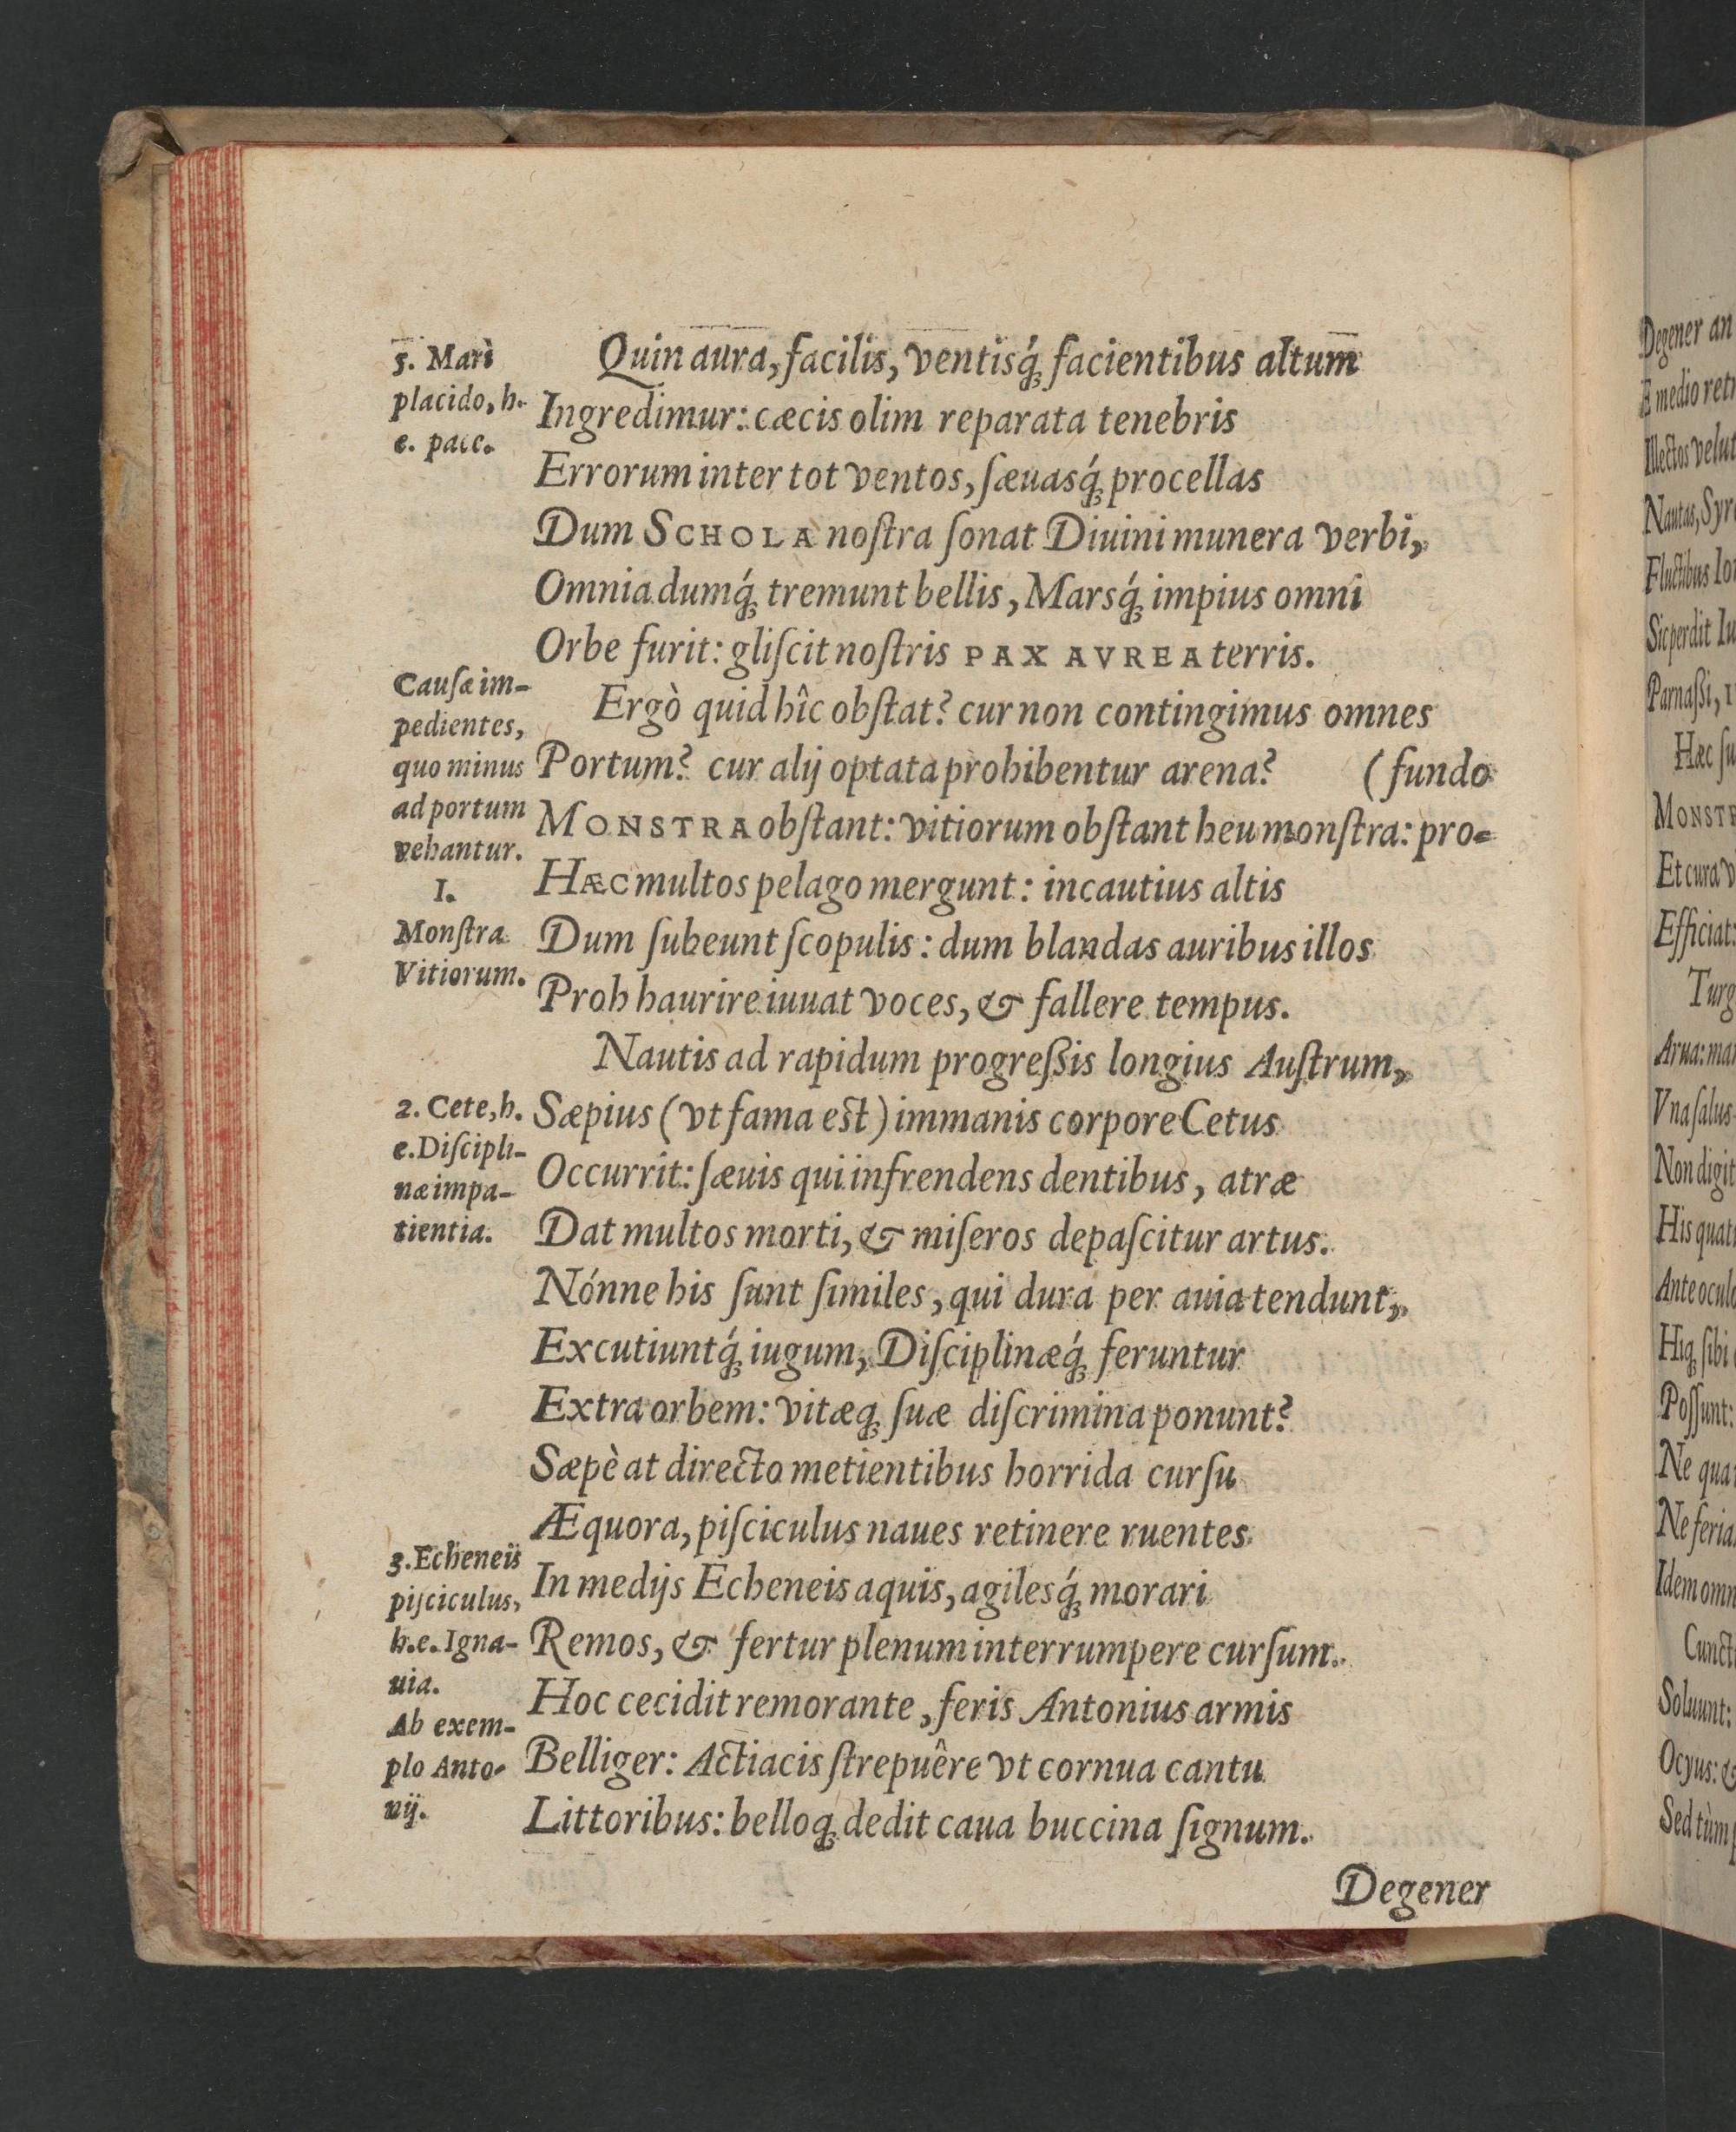 5. Mari
placido, h.
e. pace.
Quin aura, facilis, ventisq́; facientibus altum
Ingredimur: cæcis olim reparata tenebris
Errorum inter tot ventos, ſæuasq́; procellas
Dum SCHOLA noſtra ſonat Diuini munera verbi,
Omnia dumq́; tremunt bellis, Marsq́; impius omni
Orbe furit: gliſcit noſtris PAX AVREA terris.
Cauſæ im-
pedientes,
quo minus
ad portum
vehantur.
Ergò quid hîc obſtat? cur non contingimus omnes
Portum? cur alij optata prohibentur arena? (fundo
MONSTRA obſtant: vitiorum obſtant heu monſtra: pro-
I.
Monſtra
Vitiorum.
HÆC multos pelago mergunt: incautius altis
Dum ſubeunt ſcopulis: dum blandas auribus illos
Proh haurire iuuat voces, & fallere tempus.
Nautis ad rapidum progreſſis longius Auſtrum,
2. Cete, h.
e. Diſcipli-
næ impa-
tientia.
Sæpius (vt fama eſt) immanis corpore Cetus
Occurrit: ſæuis qui infrendens dentibus, atræ
Dat multos morti, & miſeros depaſcitur artus.
Nónne his ſunt ſimiles, qui dura per auia tendunt,
Excutiuntq́; iugum, Diſciplinæq́; feruntur
Extra orbem: vitæq; ſuæ diſcrimina ponunt?
Sæpè at directo metientibus horrida curſu
Æquora, piſciculus naues retinere ruentes
3. Echeneis
piſciculus,
h.e. Igna-
uia.
In medijs Echeneis aquis, agilesq́; morari
Remos, & fertur plenum interrumpere curſum.
Ab exem-
plo Anto-
nij.
Hoc cecidit remorante, feris Antonius armis
Belliger: Actiacis ſtrepuêre vt cornua cantu
Littoribus: belloq; dedit caua buccina ſignum.
Degener
Degener an
E medio retr
Illectos velut
Nautas, Syr
Fluctibus
Sic perdit
Parnaſſi,
Hæc
MONST
Et cura
Efficiat:
Turg
Arua:
Vna ſalus
Non digit
His quat
Ante ocul
Hiq; ſibi
Poſſunt:
Ne qua
Ne feria
Idem omn
Cuncti
Soluunt:
Ocyus:
Sed tùm